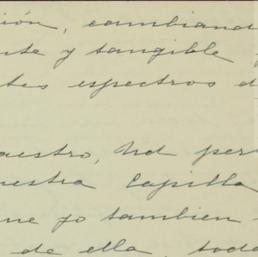 ión, cambiand
nte y tangible
tes espectros d
aestro, Ud per
uestra Capilla
ue yo tambien
de ella, toda